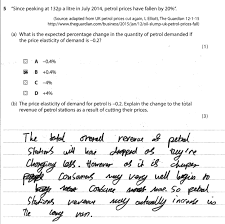 5 "Since peaking at 132p a litre in July 2014, petrol prices have fallen by 20%".
(Source adapted from UK petrol prices cut again, L Elliott, The Guardian 12-1-15
(a) What is the expected percentage change in the quantity of petrol demanded if
the price elasticity of demand is –0.2?
(1)
A –0.4%
B +0.4%
C –4%
D +4%
(b) The price elasticity of demand for petrol is –0.2. Explain the change to the total
revenue of petrol stations as a result of cutting their prices.
(3)
The total overall revenue of petrol
Stations will have dropped as they're
Charging less. However as it is cheaper
Consumers may very well begin to
Consume more. So petrol
Stations revenue may actually increase in
the long run.